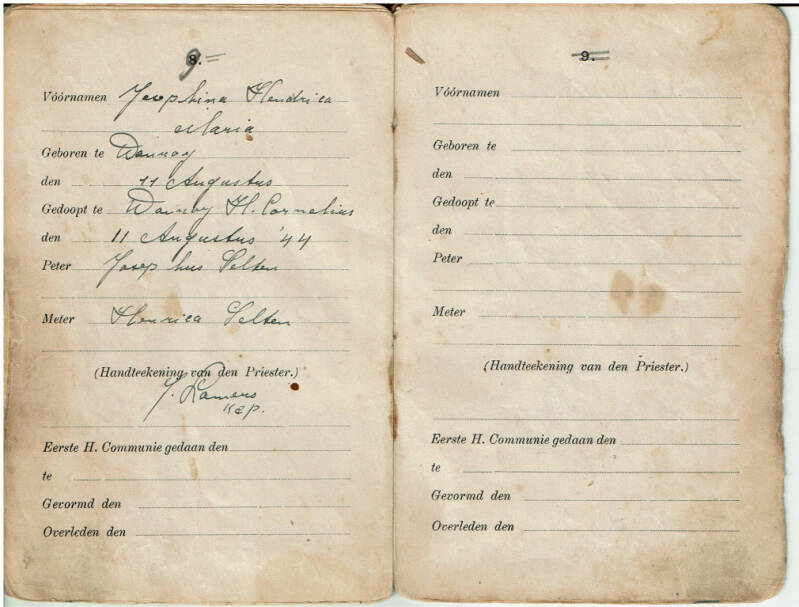 9=
8.
Vóórnamen Josephina Hendrica
Maria
Geboren te Wanroy
den 11 Augustus
Gedoopt te Wanroy H. Cornelius
den 11 Augustus '44
Peter Josephus Selten
Meter Henrica Selten
(Handteekening van den Priester.)
J. Ramers
Kap.
Eerste H. Communie gedaan den
te
Gevormd den
Overleden den
9.
Vóórnamen
Geboren te
den
Gedoopt te
den
Peter
Meter
(Handteekening van den Priester.)
Eerste H. Communie gedaan den
te
Gevormd den
Overleden den